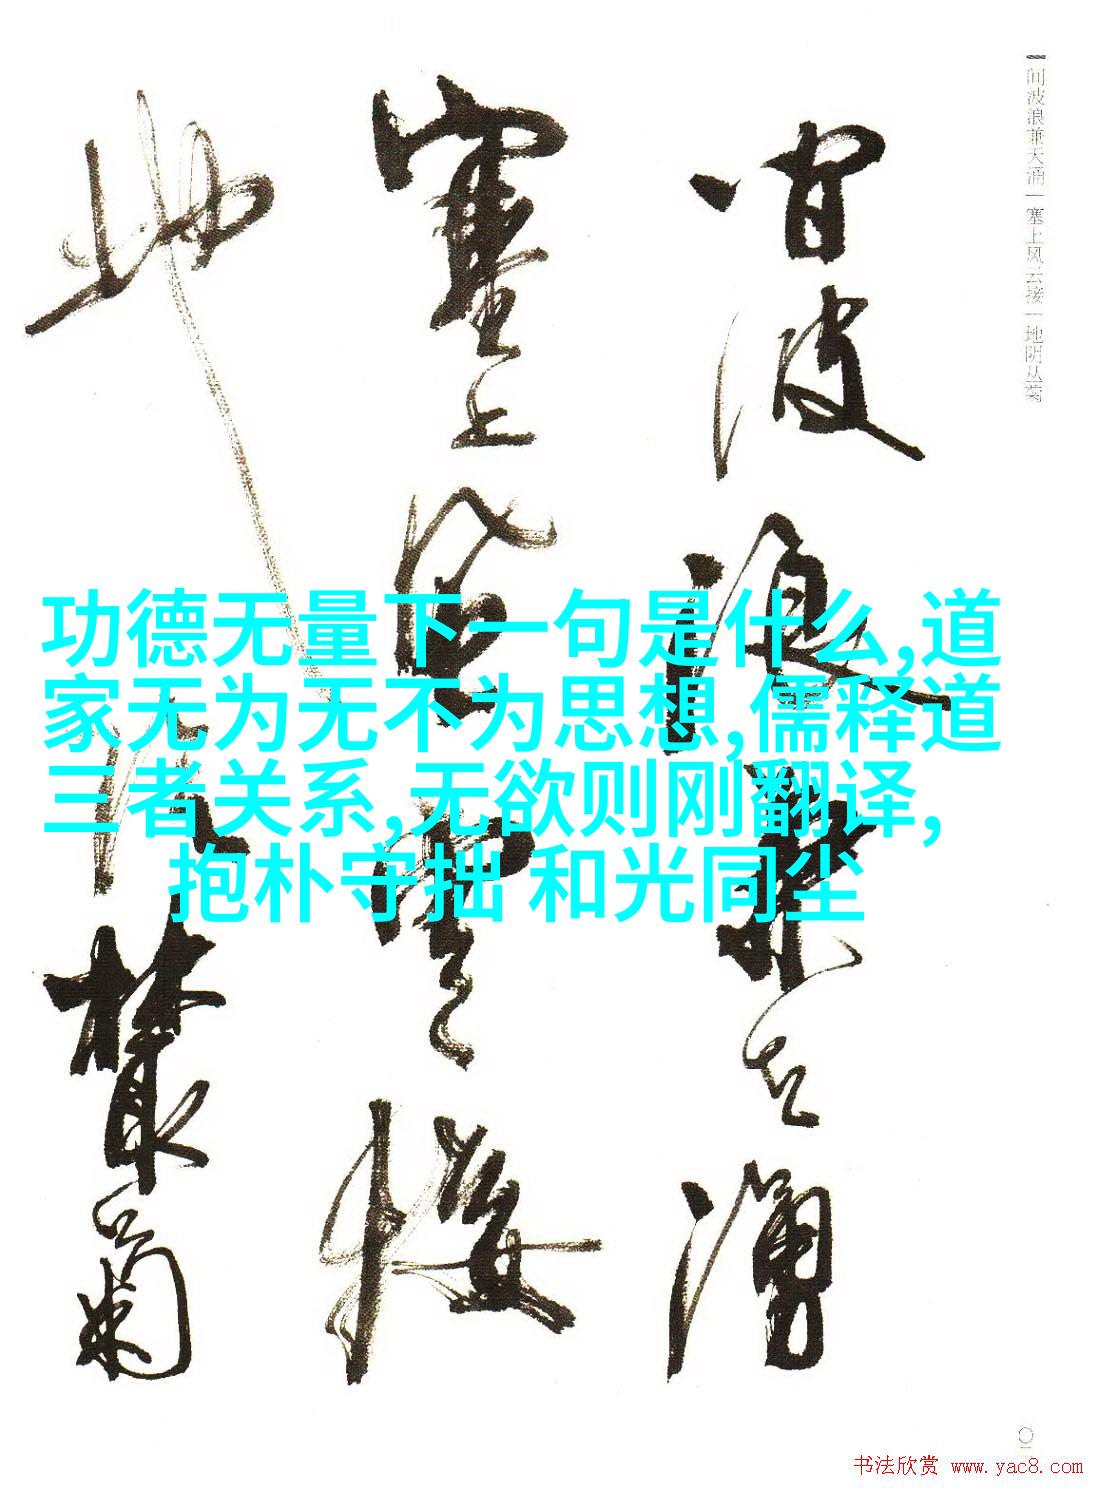 间波浪兼天涌｜塞上风云接｜地阴丛菊
间波浪兼天涌
塞上风云接
地阴丛菊
功德无量下一句是什么,道
家无为无不为思想,儒释道
三者关系,无欲则刚翻译,
抱朴守拙 和光同尘
书法欣赏 www.yac8.com